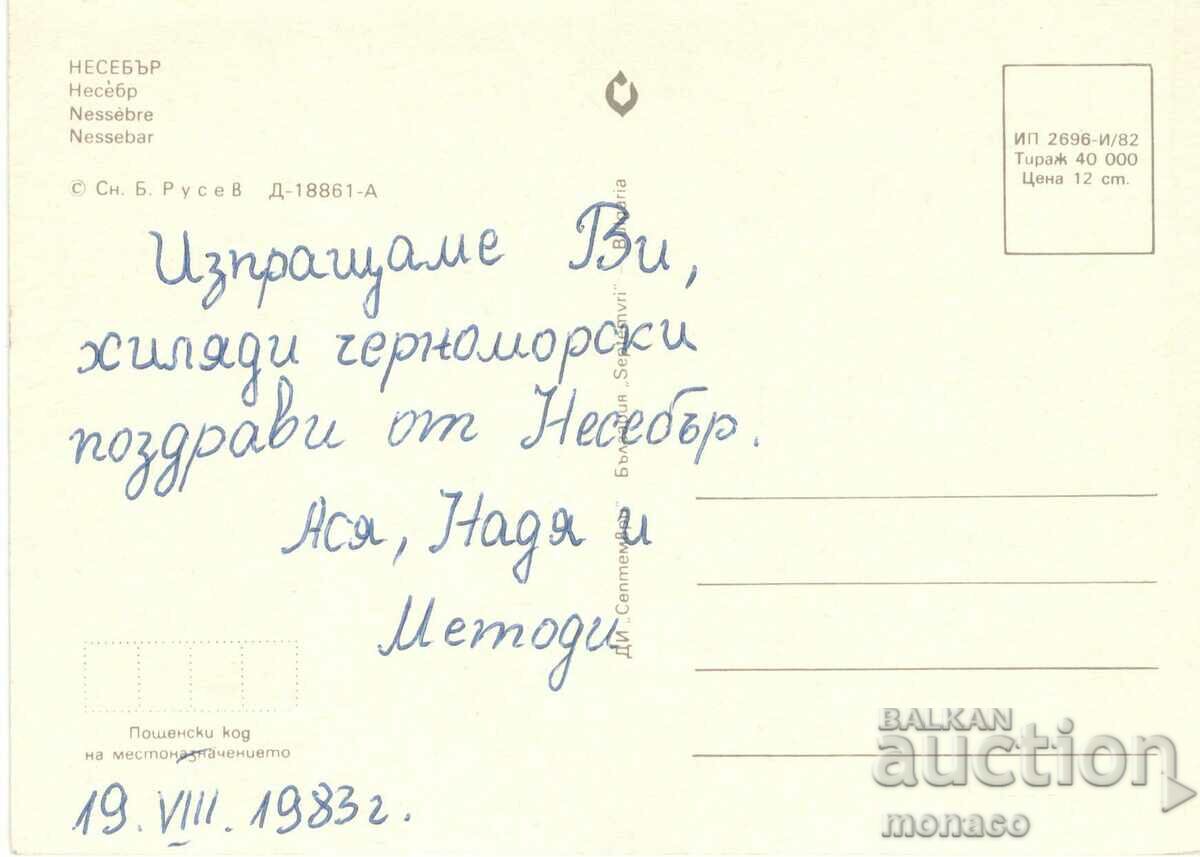 НЕСЕБЪР
Несе́бр
Nessèbre
Nessebar
© Сн. Б. Русев Д-18861-А
ИП 2696-И/82
Тираж 40 000
Цена 12 ст.
Изпращаме Ви,
хиляди черноморски
поздрави от Несебър.
Ася, Надя и
Методи
ДИ „Септември" България „Septemvri" – Bulgaria
Пощенски код
на местоназначението
19. VIII. 1983 г.
BALKAN
auction
monaco